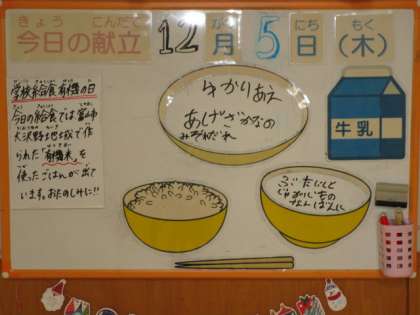 きょう こんだて がつ にち もく
今日の献立 12月5日(木)
学校給食 有機の日
今日の給食では富山市
大沢野地域で作
られた"有機米"を
使ったごはんが出て
います。おたのしみに!!
ゆかりあえ
あげざかなの
みぞれだれ
牛乳
ぶたにくと
じゃがいもの
なんばんに